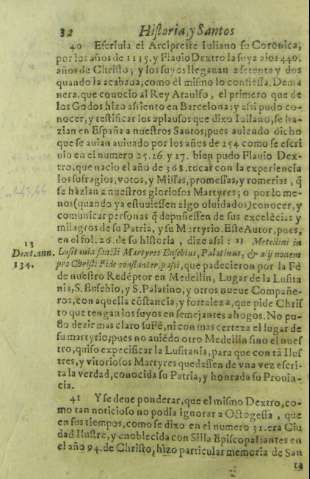 32 Historia, y Santos
40 Escriuia el Arcipreste Iuliano su Coronica,
por los años de 1115. y Flauio Dextro la suya a los 440.
años de Christo, y los suyos llegauan a setenta y dos
quando la acabaua, como èl mismo lo confiessa. De ma
nera, que conociò al Rey Ataulfo, el primero que de
los Godos hizo assiento en Barcelona: y assi pudo co-
nocer, y testificar los aplausos que dixo Iuliano, se ha-
zian en España a nuestros Santos; pues auiendo dicho
que se auian auiuado por los años de 254 como se escri
uiò en el numero 25. 26 y 27. bien pudo Flauio Dex-
tro, que naciò el año de 368. tocar con la experiencia
los sufragios, votos, y Missas, promessas, y romerias, q̃
se hazian a nuestros gloriosos Martyres; o por lo me-
nos (quando ya estuuiessen algo oluidados) conocer, y
comunicar personas q̃ depusiessen de sus excelẽcias y
milagros de su Patria, y su Martyrio. Este Autor, pues,
en el fol. 26. de su historia, dize assi: Metellini in
13
Dext. ann.
134.
Lusitania Sancti Martyres Eusebius, Palatinus, & alij nouem
pro Christi Fide constanter passi, que padecieron por la Fè
de nuestro Redẽptor en Medellin, Lugar de la Lusita
nia, S. Eusebio, y S. Palatino, y otros nueue Compañe-
ros, con aquella cõstancia, y fortaleza, que pide Chris
to que tengan los suyos en semejantes ahogos. No pu-
do dezir mas claro su Fè, ni con mas certeza el lugar de
su martyrio, pues no auiẽdo otro Medellin sino el nues
tro, quiso especificar la Lusitania, para que con tã Ilus
tres, y vitoriosos Martyres quedassen de vna vez escri
ta la verdad, conocida su Patria, y honrada su Prouin-
cia.
41 Y se deue ponderar, que el mismo Dextro, co-
mo tan noticioso no podia ignorar a Ostogesia, que
en sus tiempos, como se dixo en el numero 31. era Ciu
dad Ilustre, y enoblecida con Silla Episcopal antes en
el año 94. de Christo, hizo particular memoria de San